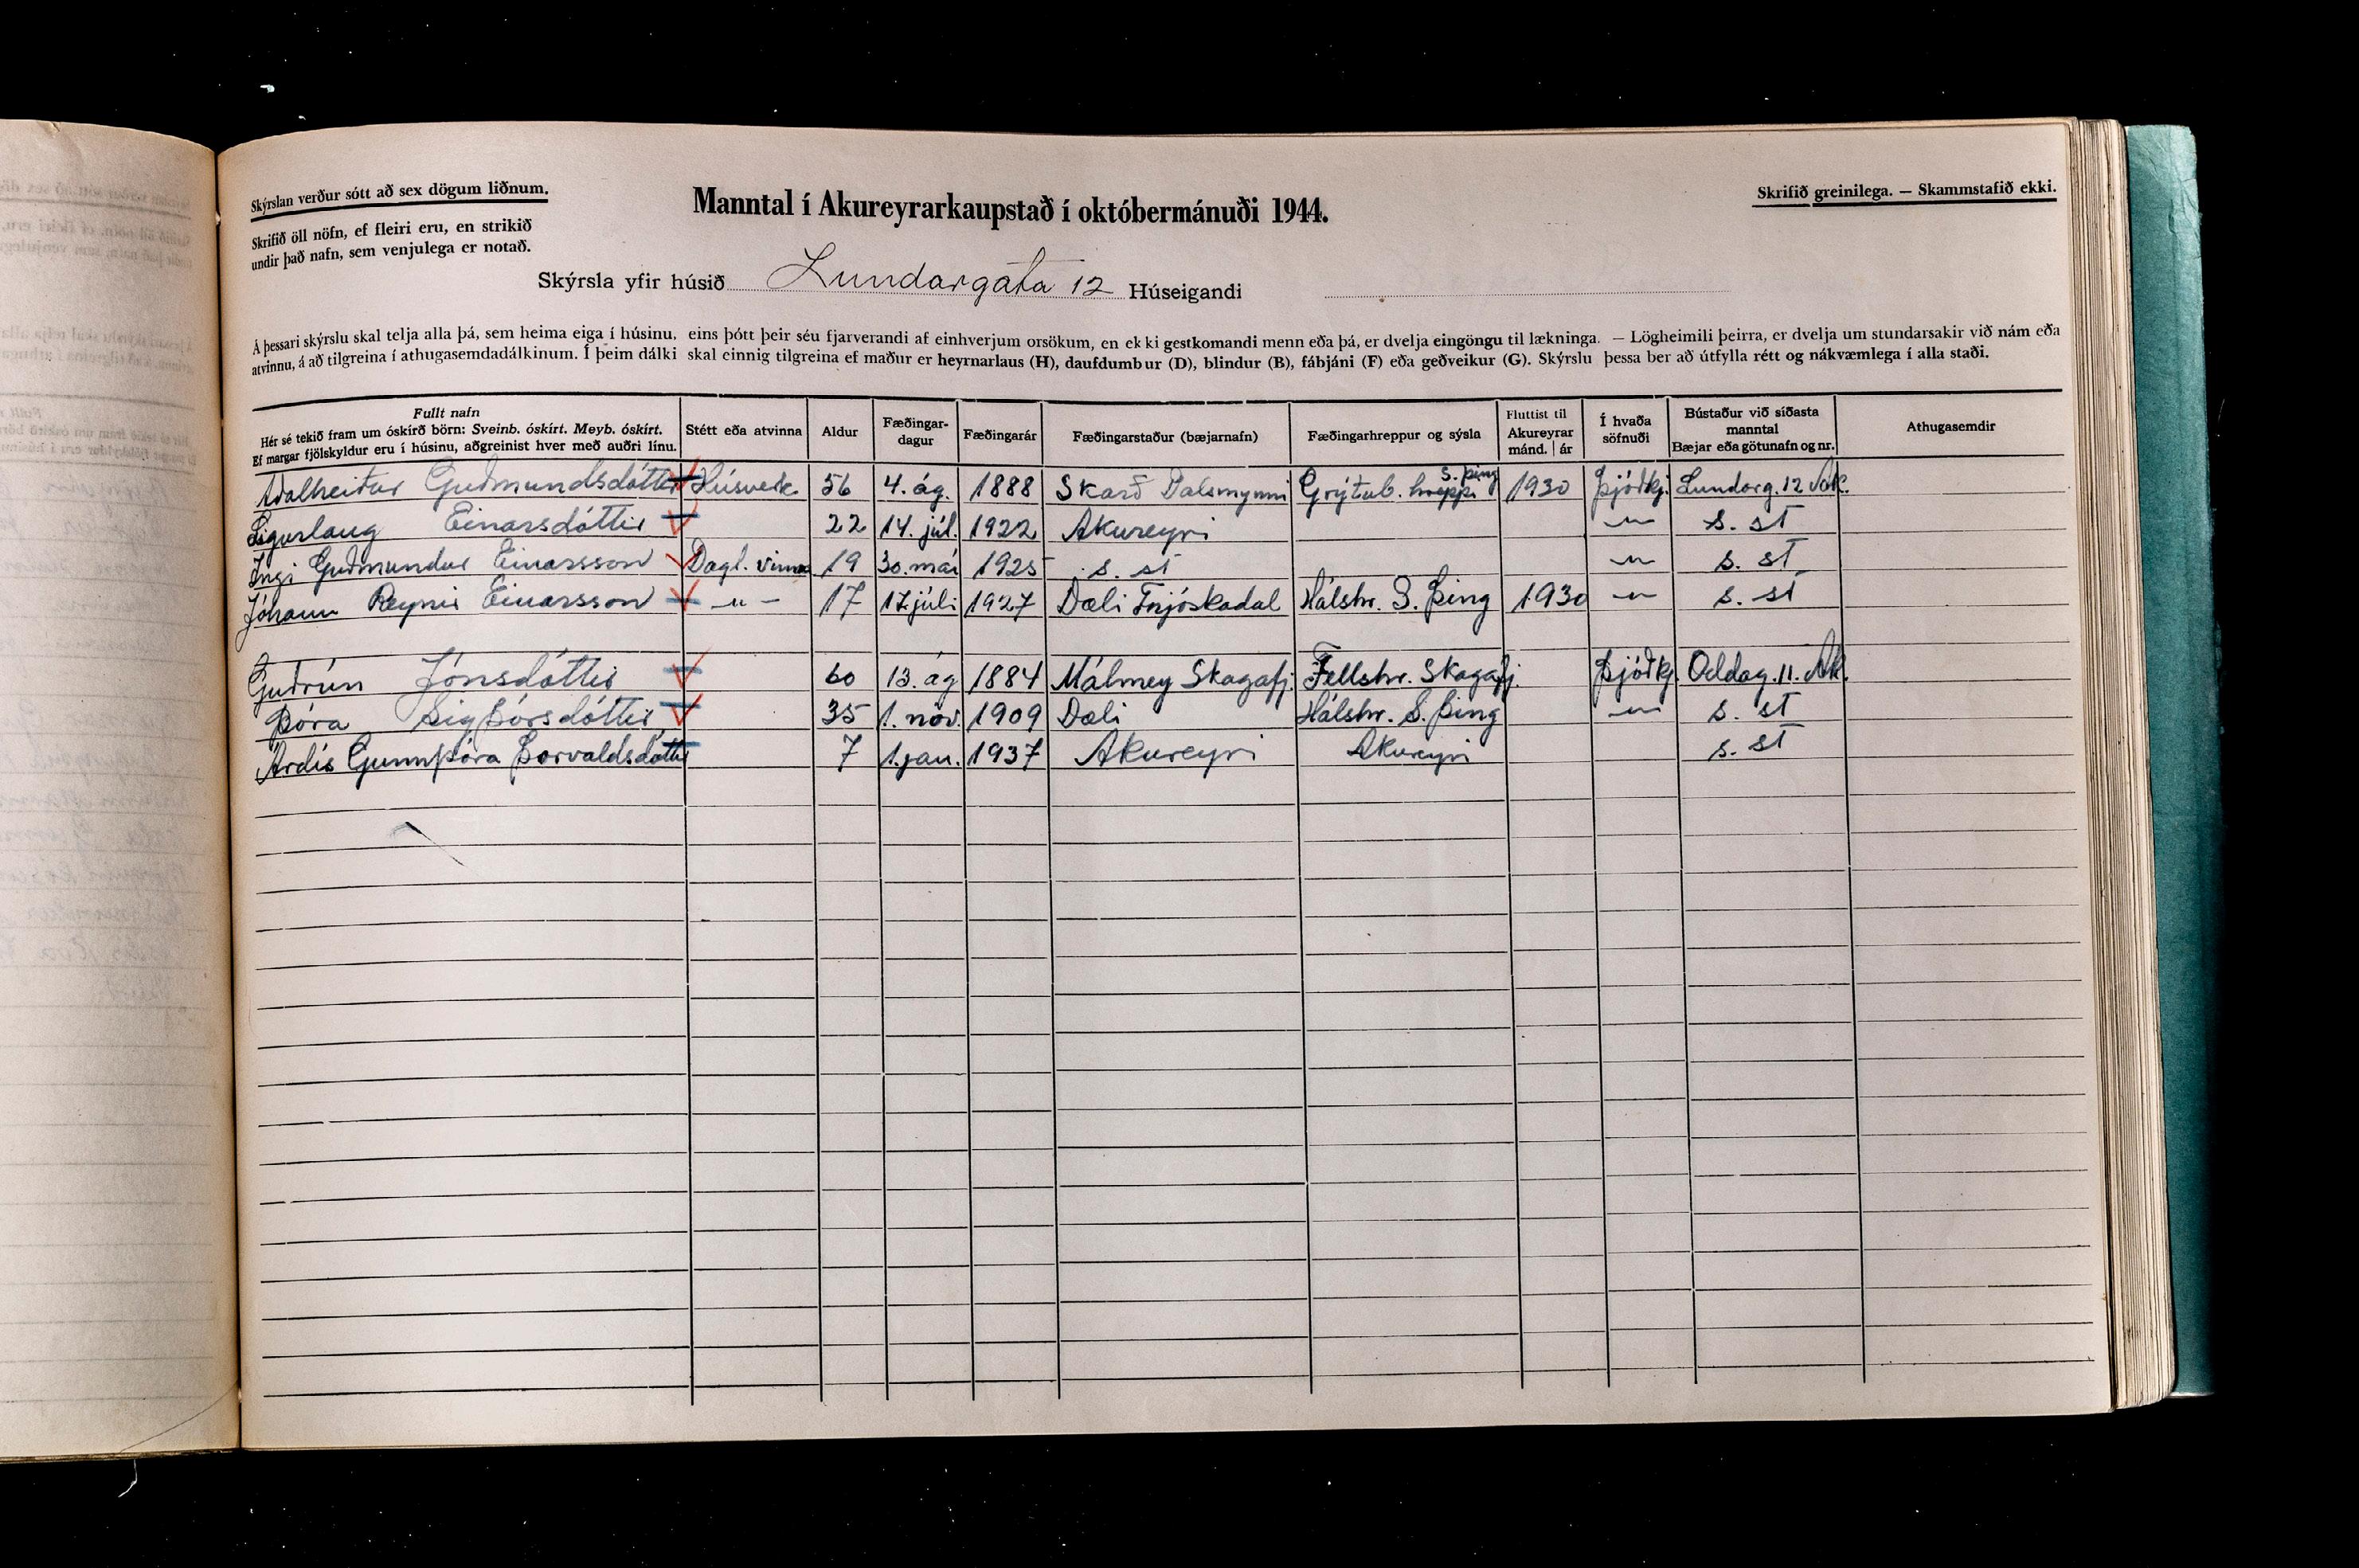 Skýrslan verður sótt að sex dögum liðnum.
Skrifið öll nöfn, ef fleiri eru, en strikið
undir það nafn, sem venjulega er notað.
Manntal í Akureyrarkaupstað í októbermánuði 1944.
Skrifið greinilega. — Skammstafið ekki.
Skýrsla yfir húsið Lundargata 12 Húseigandi
Á þessari skýrslu skal telja alla þá, sem heima eiga í húsinu, eins þótt þeir séu fjarverandi af einhverjum orsökum, en ekki gestkomandi menn eða þá, er dvelja eingöngu til lækninga. — Lögheimili þeirra, er dvelja um stundarsakir við nám eða
atvinnu, á að tilgreina í athugasemdadálkinum. Í þeim dálki skal einnig tilgreina ef maður er heyrnarlaus (H), daufdumbur (D), blindur (B), fábjáni (F) eða geðveikur (G). Skýrslu þessa ber að útfylla rétt og nákvæmlega í alla staði.
Fullt nafn
Hér sé tekið fram um óskírð börn: Sveinb. óskírt. Meyb. óskírt.
Ef margar fjölskyldur eru í húsinu, aðgreinist hver með auðri línu.
Stétt eða atvinna
Aldur
Fæðingar-
dagur
Fæðingarár
Fæðingarstaður (bæjarnafn)
Fæðingarhreppur og sýsla
Fluttist til
Akureyrar
mánd. | ár
Í hvaða
söfnuði
Bústaður við síðasta
manntal
Bæjar eða götunafn og nr.
Athugasemdir
Aðalheiður Guðmundsdóttir Húsverk 56 4. ág. 1888 Skarð Dalsmynni Grýtub. hreppi S. Þing 1930 Þjóðkj. Lundarg. 12 Ak.
Sigurlaug Einarsdóttir 22 14. júl. 1922 Akureyri –„– s. st
Ingi Guðmundur Einarsson Dagl. vinna 19 30. maí 1925 s. st –„– s. st
Jóhann Reynir Einarsson –„– 17 17. júli 1927 Dæli Fnjóskadal Hálshr. S. Þing 1930 –„– s. st
Guðrún Jónsdóttir 60 13. ág 1884 Málmey Skagafj. Fellshr. Skagafj. Þjóðkj. Oddag. 11. Ak.
Þóra Sigþórsdóttir 35 1. nóv. 1909 Dæli Hálshr. S. Þing –„– s. st
Árdís Gunnþóra Þorvaldsdóttir 7 1. jan. 1937 Akureyri Akureyri s. st